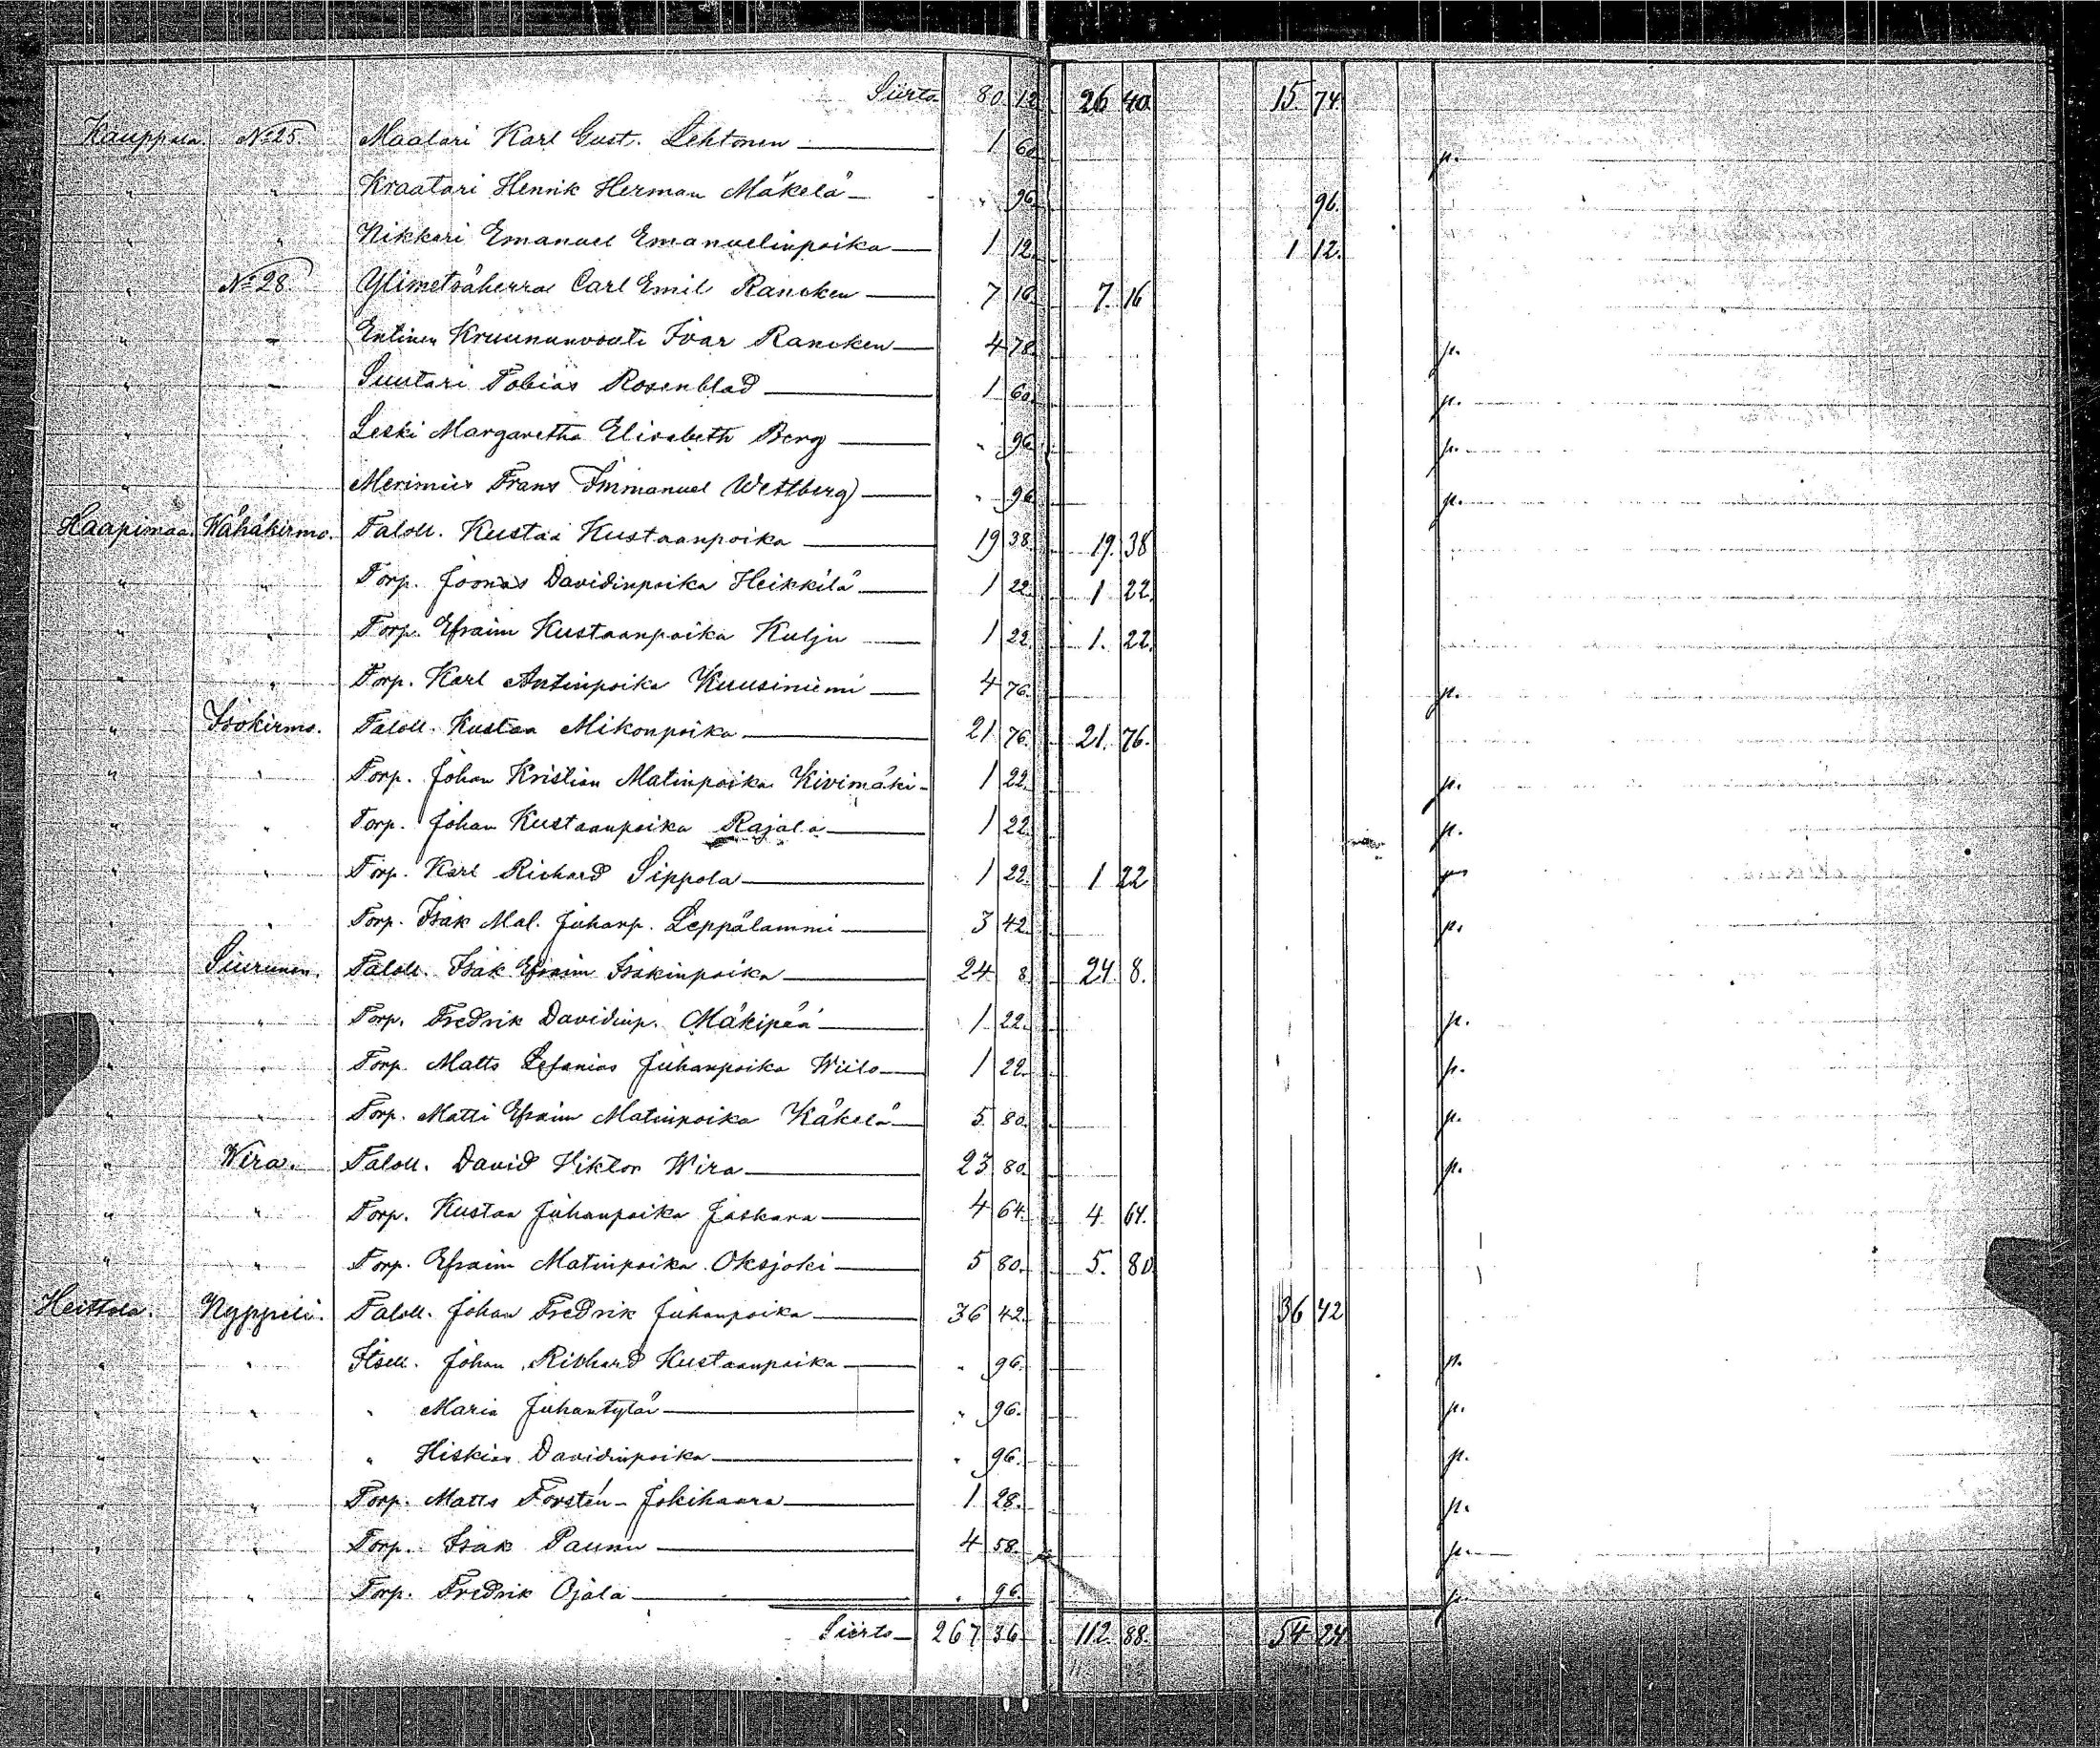 Siirto 80 12 26 40 15 74
Kauppala. No 25. Maalari Karl Gust. Lehtonen 1 60 p.
" " Kraatari Henrik Herman Mäkelä " 96 96.
" " Nikkari Emanuel Emanuelinpoika 1 12. 1 12.
" No 28. Ylimetsäherra Carl Emil Rancken 7 16. 7. 16
" " Entinen Kruununvouti Ivar Rancken 4 78. p.
" " Suutari Tobias Rosenblad 1 60. p.
" Leski Margaretha Elisabeth Berg " 96 p.
" Merimies Frans Immanuel Wettberg " 96 p.
Haapimaa. Wähäkirmo. Taloll. Kustaa Kustaanpoika 19 38. 19. 38
" " Torp. Joonas Davidinpoika Heikkilä 1 22. 1 22.
" " Torp. Efraim Kustaanpoika Kulju 1 22. 1. 22.
" " Torp. Karl Antinpoika Kuusiniemi 4 76. p.
" Isokirmo. Taloll. Kustaa Mikonpoika 21 76. 21. 76.
" " Torp. Johan Kristian Matinpoika Kivimäki 1 22. p.
" " Torp. Johan Kustaanpoika Rajala 1 22. p.
" " Torp. Karl Richard Sippola 1 22. 1 22
" " Torp. Isak Mal. Juhanp. Leppälammi 3 42. p.
" Siurunen. Taloll. Isak Efraim Isakinpoika 24 8. 24. 8.
" " Torp. Fredrik Davidinp. Mäkipää 1 22. p.
" " Torp. Matts Sefanias Juhanpoika Wiilo 1 22. p.
" " Torp. Matti Efraim Matinpoika Käkelä 5 80. p.
" Wira. Taloll. David Viktor Wira 23 80. p.
" " Torp. Kustaa Juhanpoika Jaskara 4 64. 4. 64.
" " Torp. Efraim Matinpoika Oksjoki 5 80. 5. 80
Heittola. Nyppeli. Taloll. Johan Fredrik Juhanpoika 36 42. 36 42
" " Itsell. Johan Rikhard Kustaanpoika " 96. p.
" " " Maria Juhantytär " 96. p.
" " " Hiskias Davidinpoika " 96. p.
" " Torp. Matts Forstén-Jokihaara 1 28. p.
" " Torp. Isak Paunu 4 58. p.
" " Torp. Fredrik Ojala " 96. p.
Siirto 267 36 112. 88. 54 24